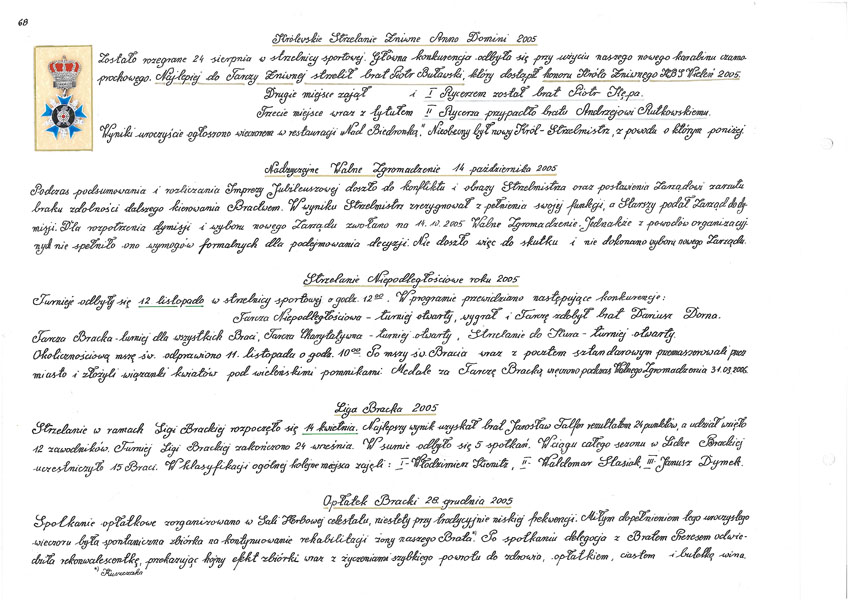 68
Królewskie Strzelanie Żniwne Anno Domini 2005
Zostało rozegrane 24 sierpnia w strzelnicy sportowej. Główna konkurencja odbyła się przy użyciu naszego nowego karabinu czarno
prochowego. Najlepiej do Tarczy Żniwnej strzelił brat Piotr Buławski, który dostąpił honoru Króla Żniwnego KBS Wieleń 2005.
Drugie miejsce zajął i I Rycerzem został brat Piotr Kępa.
Trzecie miejsce wraz z tytułem II Rycerza przypadło bratu Andrzejowi Rutkowskiemu.
Wyniki uroczyście ogłoszono wieczorem w restauracji „Nad Biedronką". Nieobecny był nowy Król-Strzelmistrz, z powodu o którym poniżej
Nadzwyczajne Walne Zgromadzenie 14 października 2005
Podczas podsumowania i rozliczania Imprezy Jubileuszowej doszło do konfliktu i obrazy Strzelmistrza oraz postawienia Zarządowi zarzutu
braku zdolności dalszego kierowania Bractwem. W wyniku Strzelmistrz zrezygnował z pełnienia swojej funkcji, a Starszy podał Zarząd do dy-
misji. Dla rozpatrzenia dymisji i wyboru nowego Zarządu zwołano na 14.10.2005 Walne Zgromadzenie. Jednakże z powodów organizacyj-
nych nie spełniło ono wymogów formalnych dla podejmowania decyzji. Nie doszło więc do skutku i nie dokonano wyboru nowego Zarządu.
Strzelanie Niepodległościowe roku 2005
Turnieje odbyły się 12 listopada w strzelnicy sportowej o godz. 12⁰⁰. W programie przewidziano następujące konkurencje:
Tarcza Niepodległościowa - turniej otwarty, wygrał i Tarczę zdobył brat Dariusz Dorna.
Tarcza Bracka - turniej dla wszystkich Braci, Tarcza Charytatywna - turniej otwarty, Strzelanie do Kura - turniej otwarty.
Okolicznościową mszę św. odprawiono 11. listopada o godz. 10⁰⁰ Po mszy św. Bracia wraz z pocztem sztandarowym przemaszerowali przez
miasto i złożyli wiązanki kwiatów pod wieleńskimi pomnikami Medale za Tarczę Bracką wręczono podczas Walnego Zgromadzenia 31.03.2006.
Liga Bracka 2005
Strzelanie w ramach Ligi Brackiej rozpoczęło się 14 kwietnia. Najlepszy wynik uzyskał brat Jarosław Talfer rezultatem 24 punktów, a udział wzięło
12 zawodników. Turniej Ligi Brackiej zakończono 24 września. W sumie odbyło się 5 spotkań. W ciągu całego sezonu w Lidze Brackiej
uczestniczyło 15 Braci. W klasyfikacji ogólnej kolejne miejsca zajęli: I - Włodzimierz Klemitz, II - Waldemar Stasiak, III - Janusz Dymek.
Opłatek Bracki 28 grudnia 2005
Spotkanie opłatkowe zorganizowano w Sali Herbowej celestatu, niestety przy tradycyjnie niskiej frekwencji. Miłym dopełnieniem tego uroczystego
wieczoru była spontaniczna zbiórka na kontynuowanie rehabilitacji żony naszego Brata*). Po spotkaniu delegacja z Bratem Prezesem odwie-
dziła rekonwalescentkę, przekazując hojny efekt zbiórki wraz z życzeniami szybkiego powrotu do zdrowia, opłatkiem, ciastem i butelką wina.